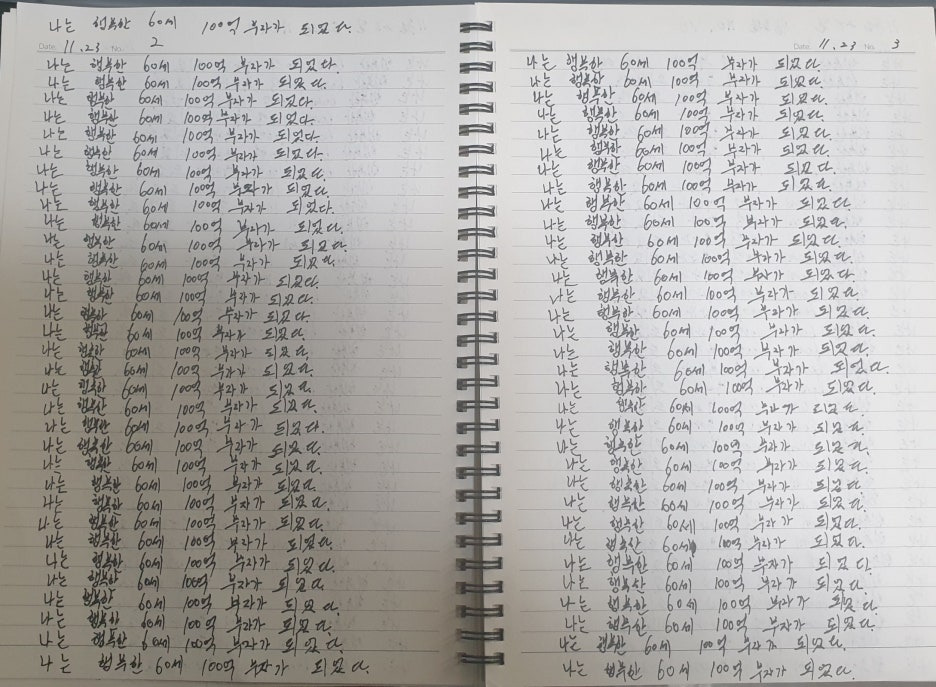 나는 행복한 60세 100억 부자가 되었다.
Date. 11.23 No. 2
나는 행복한 60세 100억 부자가 되었다.
나는 행복한 60세 100억 부자가 되었다.
나는 행복한 60세 100억 부자가 되었다.
나는 행복한 60세 100억 부자가 되었다.
나는 행복한 60세 100억 부자가 되었다.
나는 행복한 60세 100억 부자가 되었다.
나는 행복한 60세 100억 부자가 되었다.
나는 행복한 60세 100억 부자가 되었다.
나는 행복한 60세 100억 부자가 되었다.
나는 행복한 60세 100억 부자가 되었다.
나는 행복한 60세 100억 부자가 되었다.
나는 행복한 60세 100억 부자가 되었다.
나는 행복한 60세 100억 부자가 되었다.
나는 행복한 60세 100억 부자가 되었다.
나는 행복한 60세 100억 부자가 되었다.
나는 행복한 60세 100억 부자가 되었다.
나는 행복한 60세 100억 부자가 되었다.
나는 행복한 60세 100억 부자가 되었다.
나는 행복한 60세 100억 부자가 되었다.
나는 행복한 60세 100억 부자가 되었다.
나는 행복한 60세 100억 부자가 되었다.
나는 행복한 60세 100억 부자가 되었다.
나는 행복한 60세 100억 부자가 되었다.
나는 행복한 60세 100억 부자가 되었다.
나는 행복한 60세 100억 부자가 되었다.
나는 행복한 60세 100억 부자가 되었다.
나는 행복한 60세 100억 부자가 되었다.
나는 행복한 60세 100억 부자가 되었다.
나는 행복한 60세 100억 부자가 되었다.
나는 행복한 60세 100억 부자가 되었다.
나는 행복한 60세 100억 부자가 되었다.
나는 행복한 60세 100억 부자가 되었다.
나는 행복한 60세 100억 부자가 되었다.
Date. 11.23 No. 3
나는 행복한 60세 100억 부자가 되었다.
나는 행복한 60세 100억 부자가 되었다.
나는 행복한 60세 100억 부자가 되었다.
나는 행복한 60세 100억 부자가 되었다.
나는 행복한 60세 100억 부자가 되었다.
나는 행복한 60세 100억 부자가 되었다.
나는 행복한 60세 100억 부자가 되었다.
나는 행복한 60세 100억 부자가 되었다.
나는 행복한 60세 100억 부자가 되었다.
나는 행복한 60세 100억 부자가 되었다.
나는 행복한 60세 100억 부자가 되었다.
나는 행복한 60세 100억 부자가 되었다.
나는 행복한 60세 100억 부자가 되었다.
나는 행복한 60세 100억 부자가 되었다.
나는 행복한 60세 100억 부자가 되었다.
나는 행복한 60세 100억 부자가 되었다.
나는 행복한 60세 100억 부자가 되었다.
나는 행복한 60세 100억 부자가 되었다.
나는 행복한 60세 100억 부자가 되었다.
나는 행복한 60세 100억 부자가 되었다.
나는 행복한 60세 100억 부자가 되었다.
나는 행복한 60세 100억 부자가 되었다.
나는 행복한 60세 100억 부자가 되었다.
나는 행복한 60세 100억 부자가 되었다.
나는 행복한 60세 100억 부자가 되었다.
나는 행복한 60세 100억 부자가 되었다.
나는 행복한 60세 100억 부자가 되었다.
나는 행복한 60세 100억 부자가 되었다.
나는 행복한 60세 100억 부자가 되었다.
나는 행복한 60세 100억 부자가 되었다.
나는 행복한 60세 100억 부자가 되었다.
나는 행복한 60세 100억 부자가 되었다.
나는 행복한 60세 100억 부자가 되었다.